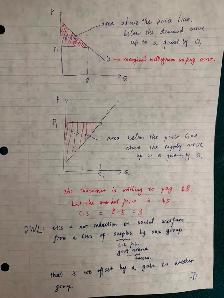 P
area above the price line,
below the demand curve
up to a quant of Q,
P
D → marginal willingness to pay curve.
Q
Q
P
P
area below the price line
above the supply curve
up to a quant of Q.
Q
the consumer is willing to pay $8
but the market price is $5
CS = 8 - 5 = 3
DWL: it is a reduction in social welfare
from a loss of surplus by one group
that is not offset by a gain to another
group.